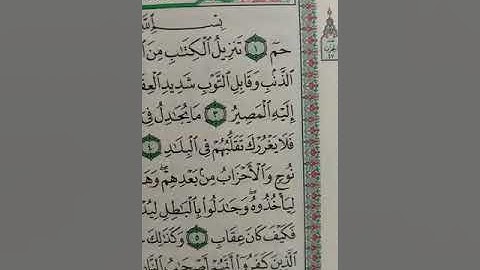 بِسْمِ ٱللَّهِ
حمٓ ١ تَنزِيلُ ٱلْكِتَٰبِ مِنَ
ٱلذَّنۢبِ وَقَابِلِ ٱلتَّوْبِ شَدِيدِ ٱلْعِقَ
إِلَيْهِ ٱلْمَصِيرُ ٣ مَا يُجَٰدِلُ فِىٓ
فَلَا يَغْرُرْكَ تَقَلُّبُهُمْ فِى ٱلْبِلَٰدِ ٤
نُوحٍ وَٱلْأَحْزَابُ مِنۢ بَعْدِهِمْ ۖ وَهَ
لِيَأْخُذُوهُ ۖ وَجَٰدَلُوا۟ بِٱلْبَٰطِلِ لِيُدْ
فَكَيْفَ كَانَ عِقَابِ ٥ وَكَذَٰلِكَ
ٱلَّذِينَ كَفَرُوٓا۟ أَنَّهُمْ أَصْحَٰبُ ٱلنَّا